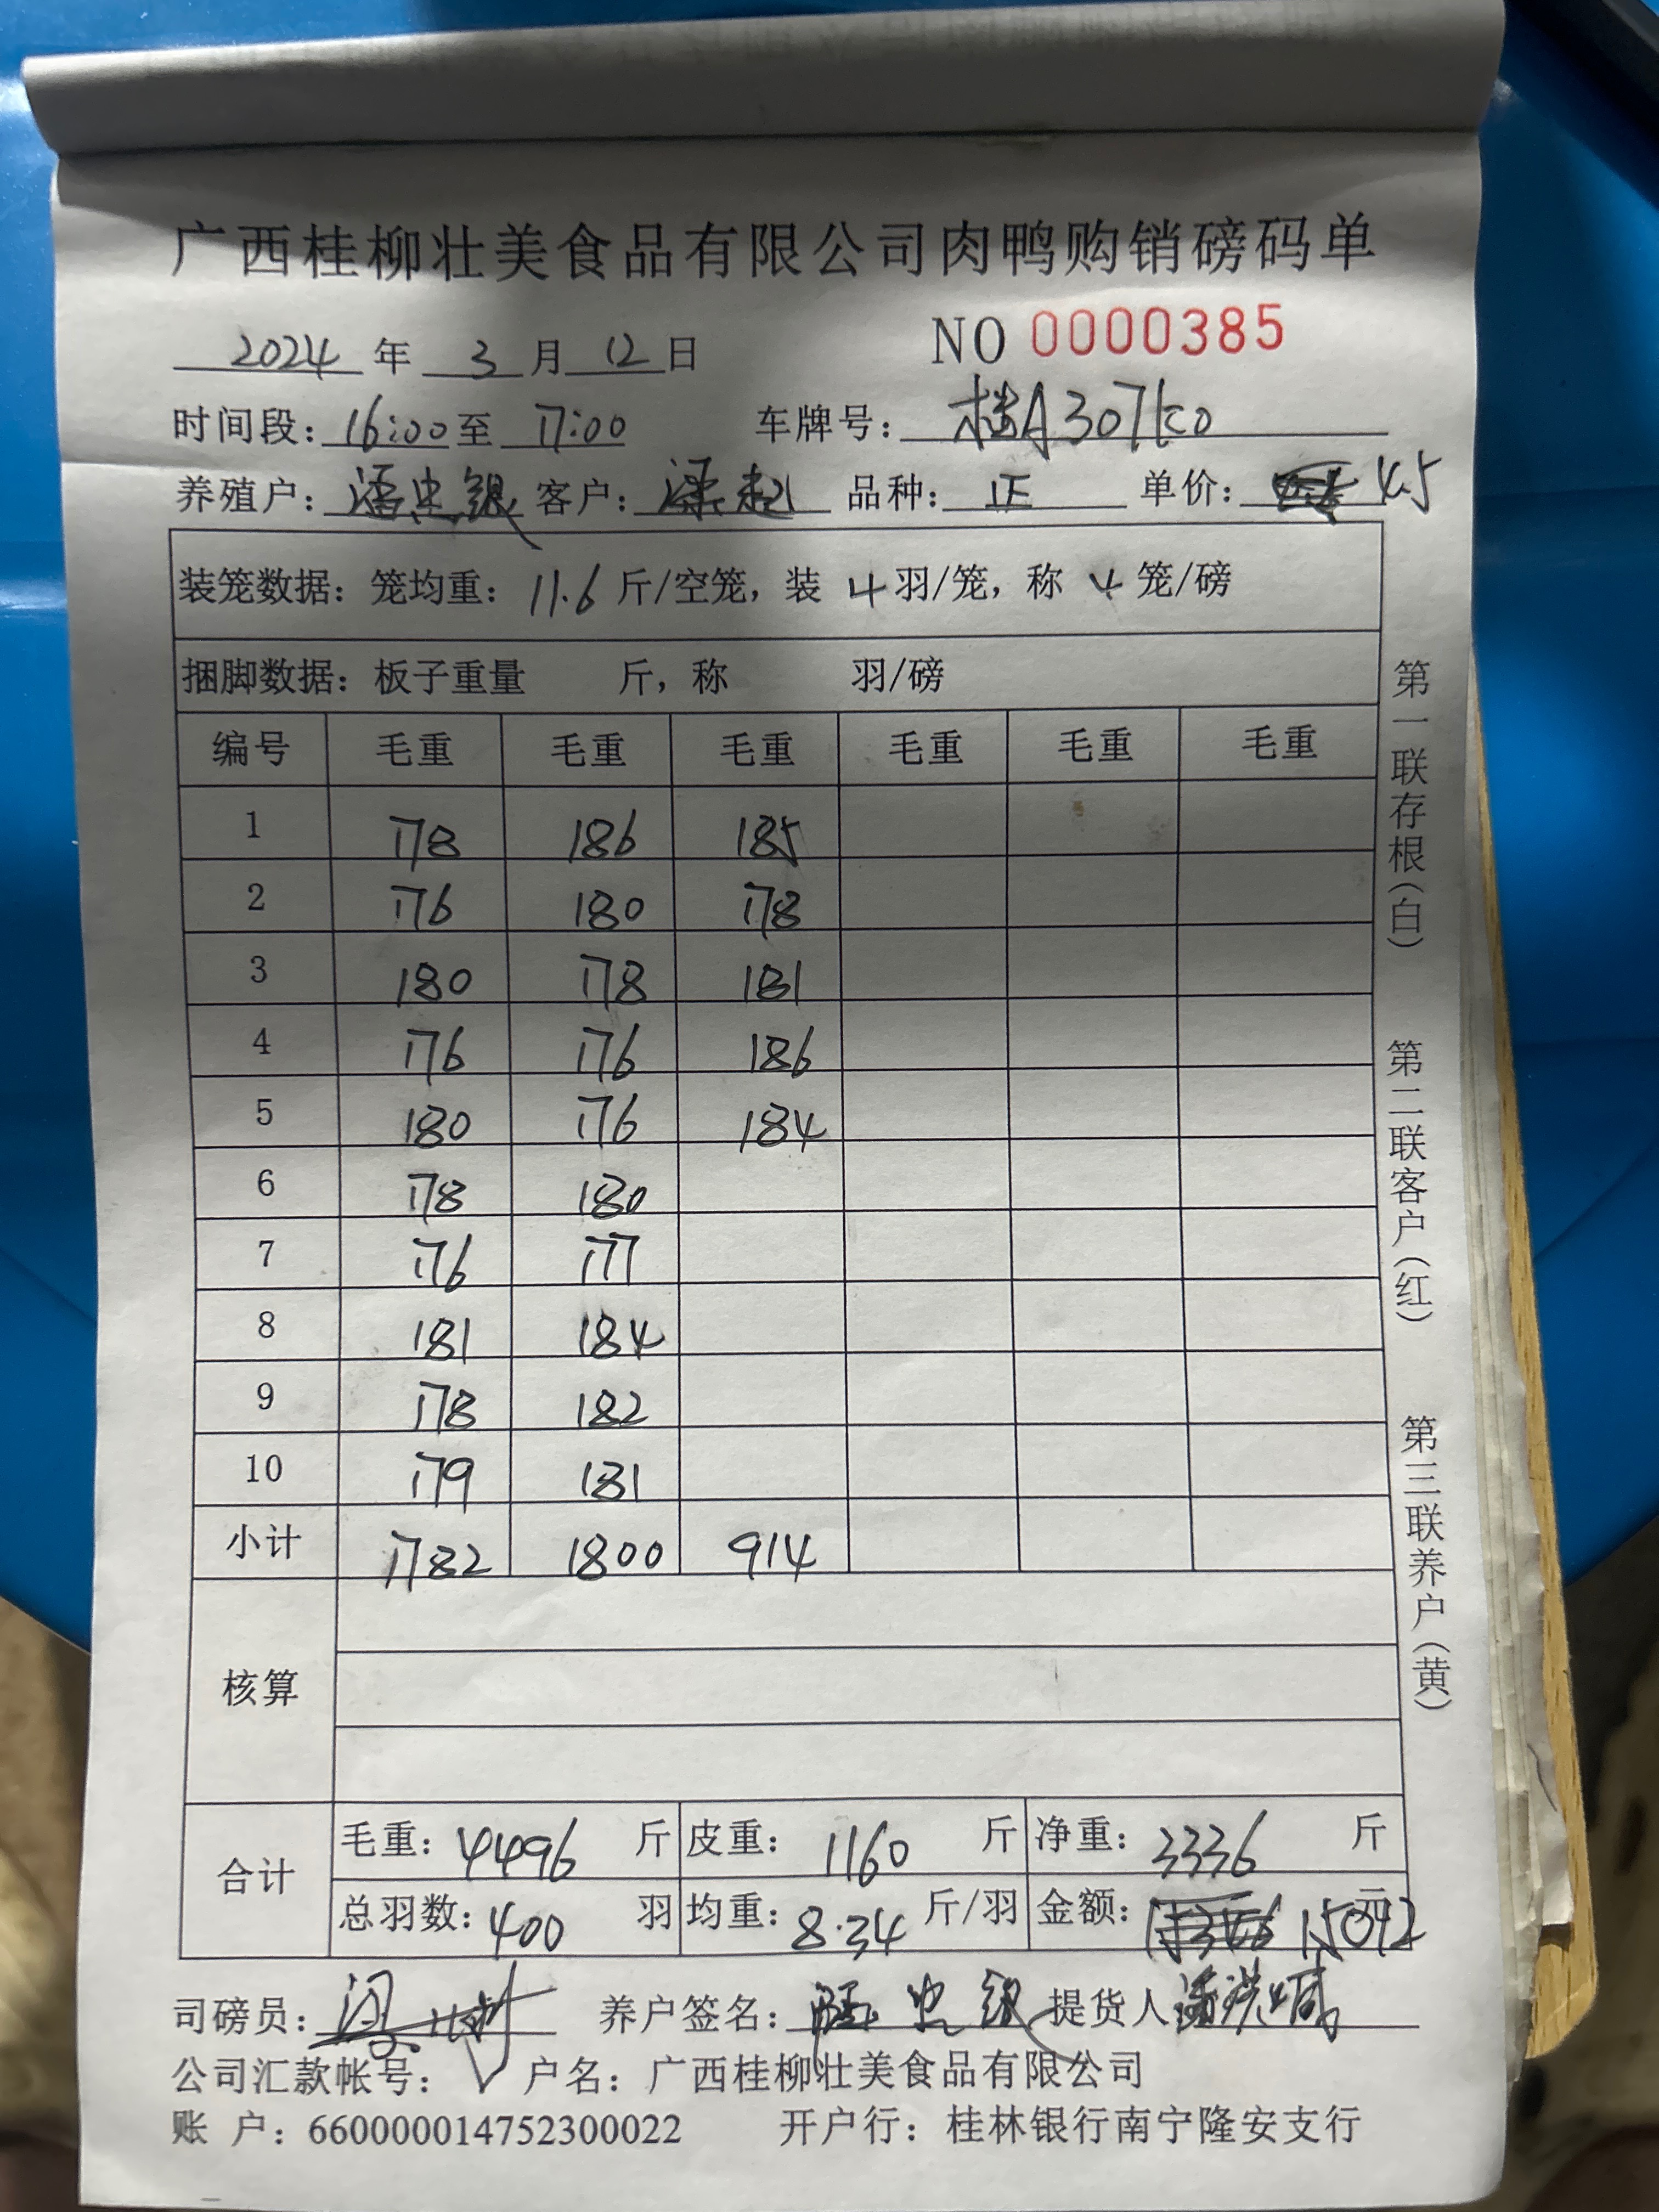 广西桂柳壮美食品有限公司肉鸭购销磅码单
NO 0000385
2024 年 3 月 12 日
时间段：16:00 至 17:00 车牌号：桂A307K0
养殖户：潘忠银 客户：梁起 品种：正 单价：4.5
装笼数据：笼均重：11.6 斤/空笼，装 4 羽/笼，称 4 笼/磅
捆脚数据：板子重量 斤，称 羽/磅
编号 毛重 毛重 毛重 毛重 毛重 毛重
1 178 186 185
2 176 180 178
3 180 178 181
4 176 176 186
5 180 176 184
6 178 180
7 176 177
8 181 184
9 178 182
10 179 181
小计 1782 1800 914
核算
合计
毛重：4496 斤 皮重：1160 斤 净重：3336 斤
总羽数：400 羽 均重：8.34 斤/羽 金额：15012 元
司磅员： 养户签名：潘忠银 提货人
公司汇款帐号： 户名：广西桂柳壮美食品有限公司
账 户：660000014752300022 开户行：桂林银行南宁隆安支行
第一联存根（白）
第二联客户（红）
第三联养户（黄）